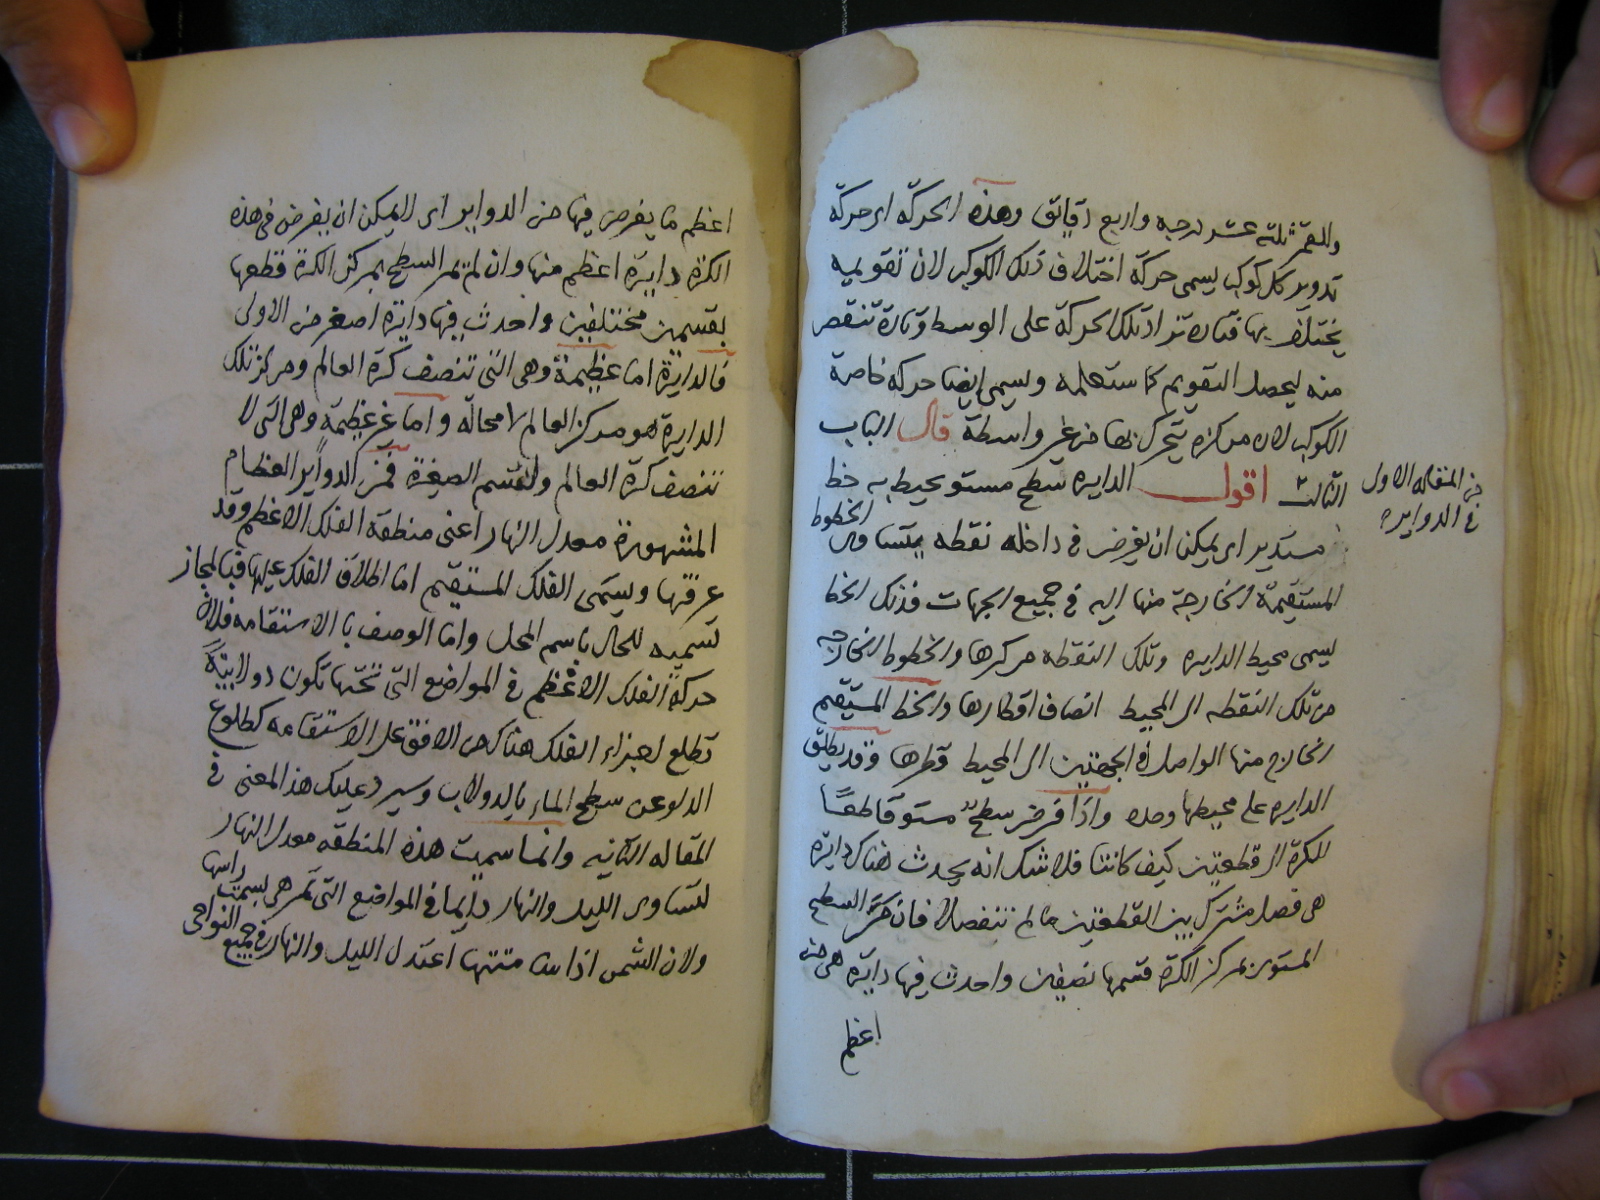 وللقمر ثلثة عشر درجه واربع دقايق وهذه الحركة اى حركة
تدوير كل كوكب يسمى حركة اختلاف ذلك الكوكب لان تقويمه
يختلف بها فتارة تزاد تلك الحركة على الوسط وتارة تنقص
منه ليحصل التقويم كما ستعلمه ويسمى ايضا حركه خاصة
الكوكب لان مركزه يتحرك بها من غير واسطة قال الباب
الثالث اقول الدايره سطح مستو يحيط به خط
من المقاله الاول
فى الدوايره
مستدير اى يمكن ان يفرض فى داخله نقطه يتساوى الخطوط
المستقيمة الخارجة منها اليه فى جميع الجهات فذلك الخط
يسمى محيط الدايره وتلك النقطه مركزها والخطوط الخارجه
من تلك النقطه الى المحيط انصاف اقطارها والخط المستقيم
الخارج منها الواصل فى الجهتين الى المحيط قطرها وقد يطلق
الدايره على محيطها وحده واذا فرض سطح مستو قاطعًا
للكرة الى قطعتين كيف كانتا فلا شك انه يحدث هناك دايرة
هى فصل مشترك بين القطعتين ما لم تنفصلا فان مرّ السطح
المستوى بمركز الكرة قسمها نصفين واحدث فيها دايرة هى من
اعظم
اعظم ما يفرض فيها من الدواير اى لا يمكن ان يفرض فى هذه
الكرة دايرة اعظم منها وان لم يمر السطح بمركز الكرة قطعها
بقسمين مختلفين واحدث فيها دايرة اصغر من الاولى
فالدايرة اما عظيمة وهى التى تنصف كرة العالم ومركز تلك
الدايرة هو مركز العالم لا محالة واما غير عظيمة وهى التى لا
تنصف كرة العالم ولتسم الصغيرة فمن الدواير العظام
المشهورة معدل النهار اعنى منطقه الفلك الاعظم وقد
عرفتها ويسمى الفلك المستقيم اما اطلاق الفلك عليها فبالمجاز
تسميه للحال باسم المحل واما الوصف بالاستقامه فلان
حركة الفلك الاعظم فى المواضع التى تحتها تكون دولابية
تطلع اجزاء الفلك هناك من الافق على الاستقامه كطلوع
الدلو عن سطح الماء بالدولاب وسيرد عليك هذا المعنى فى
المقاله الثانيه وانما سميت هذه المنطقه معدل النهار
لتساوى الليل والنهار دايما فى المواضع التى تمر هى بسمت راسها
ولان الشمس اذا سامتتها اعتدل الليل والنهار فى جميع النواحى